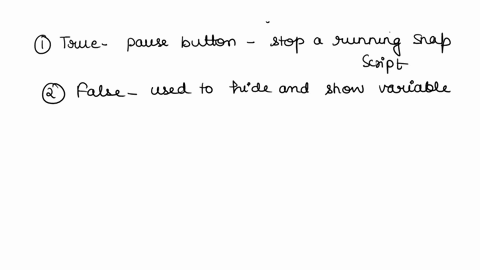 ① True- pause button - stop a running snap
script
② False- used to hide and show variable